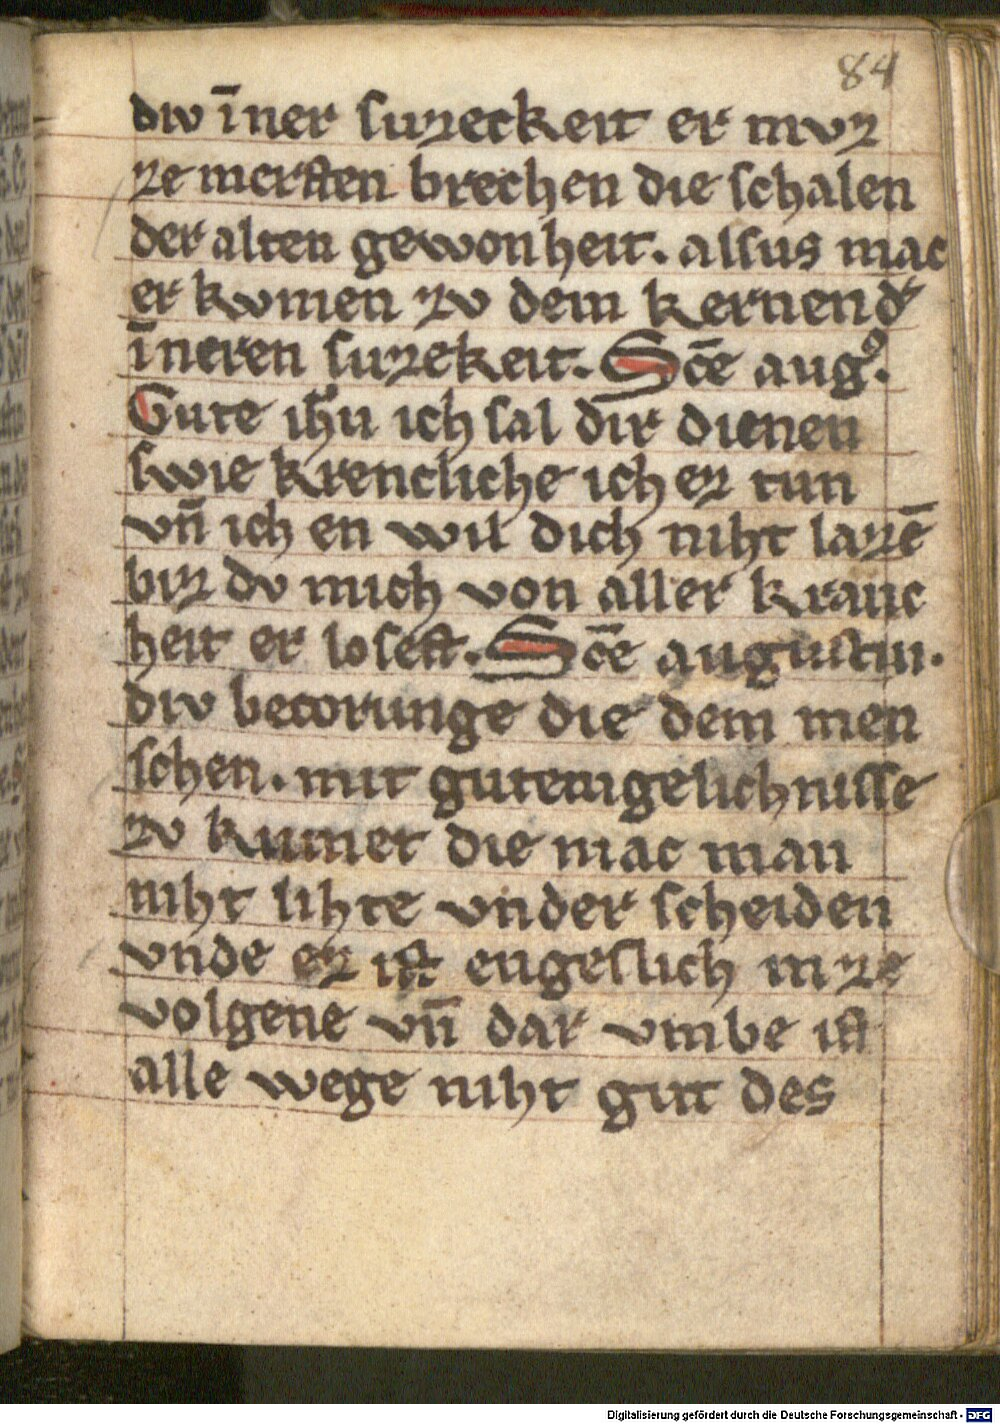 84
div īner suzeckeit er mvz
ze mersten brechen die schalen
der alten gewonheit. alsus mac
er kvmen zv dem kernen dˢ
īneren suzekeit. Sc̄e augꝰ.
Gute ih̄u ich sal dir dienen
swie krencliche ich ez tun
vn̄ ich en wil dich niht lazē
biz dv mich von aller kranc
heit er losest. Sc̄e augustin.
div becorunge die dem men
schen. mit gutem gelichnisse
zv kumet die mac man
niht lihte vnder scheiden
vnde ez ist engeslich in ze
volgene vn̄ dar vmbe ist
alle wege niht gut des
Digitalisierung gefördert durch die Deutsche Forschungsgemeinschaft - DFG